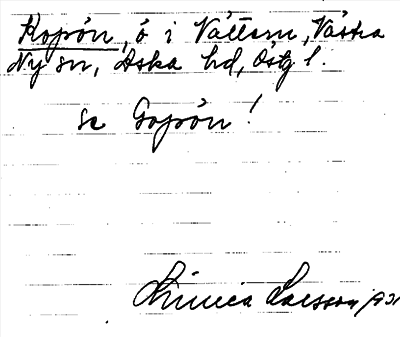 Kopön, ö i Vättern, Västra
Ny sn, Aska hd, Östg l.
se Gopön!
Linnea Larsson 1931